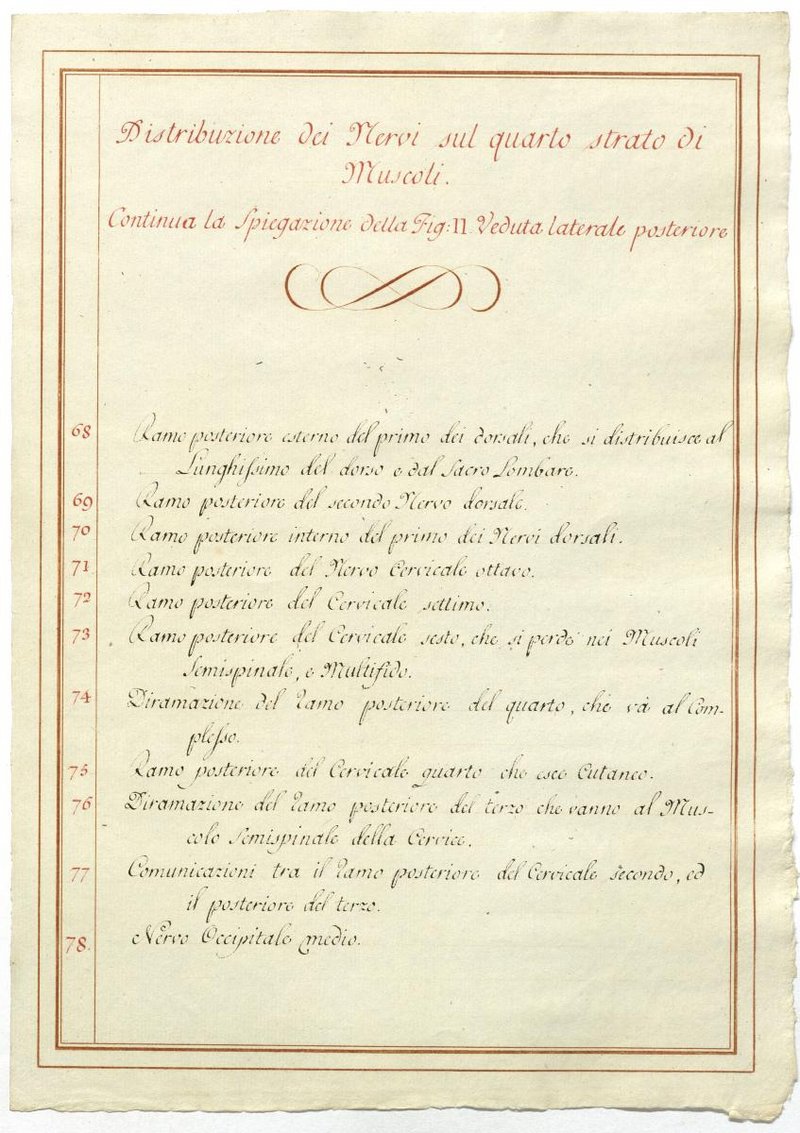 Distribuzione dei Nervi sul quarto strato di
Muscoli.
Continua la Spiegazione della Fig: II. Veduta laterale posteriore
68 Ramo posteriore esterno del primo dei dorsali, che si distribuisce al
Lunghissimo del dorso e dal Sacro Lombare.
69 Ramo posteriore del secondo Nervo dorsale.
70 Ramo posteriore interno del primo dei Nervi dorsali.
71 Ramo posteriore del Nervo Cervicale ottavo.
72 Ramo posteriore del Cervicale settimo.
73 Ramo posteriore del Cervicale sesto, che si perde nei Muscoli
Semispinale, e Multifido.
74 Diramazione del Ramo posteriore del quarto, che và al Com-
plesso.
75 Ramo posteriore del Cervicale quarto che esce Cutaneo.
76 Diramazione del Ramo posteriore del terzo che vanno al Mus-
colo Semispinale della Cervice.
77 Comunicazioni tra il Ramo posteriore del Cervicale secondo, ed
il posteriore del terzo.
78. Nervo Occipitale medio.